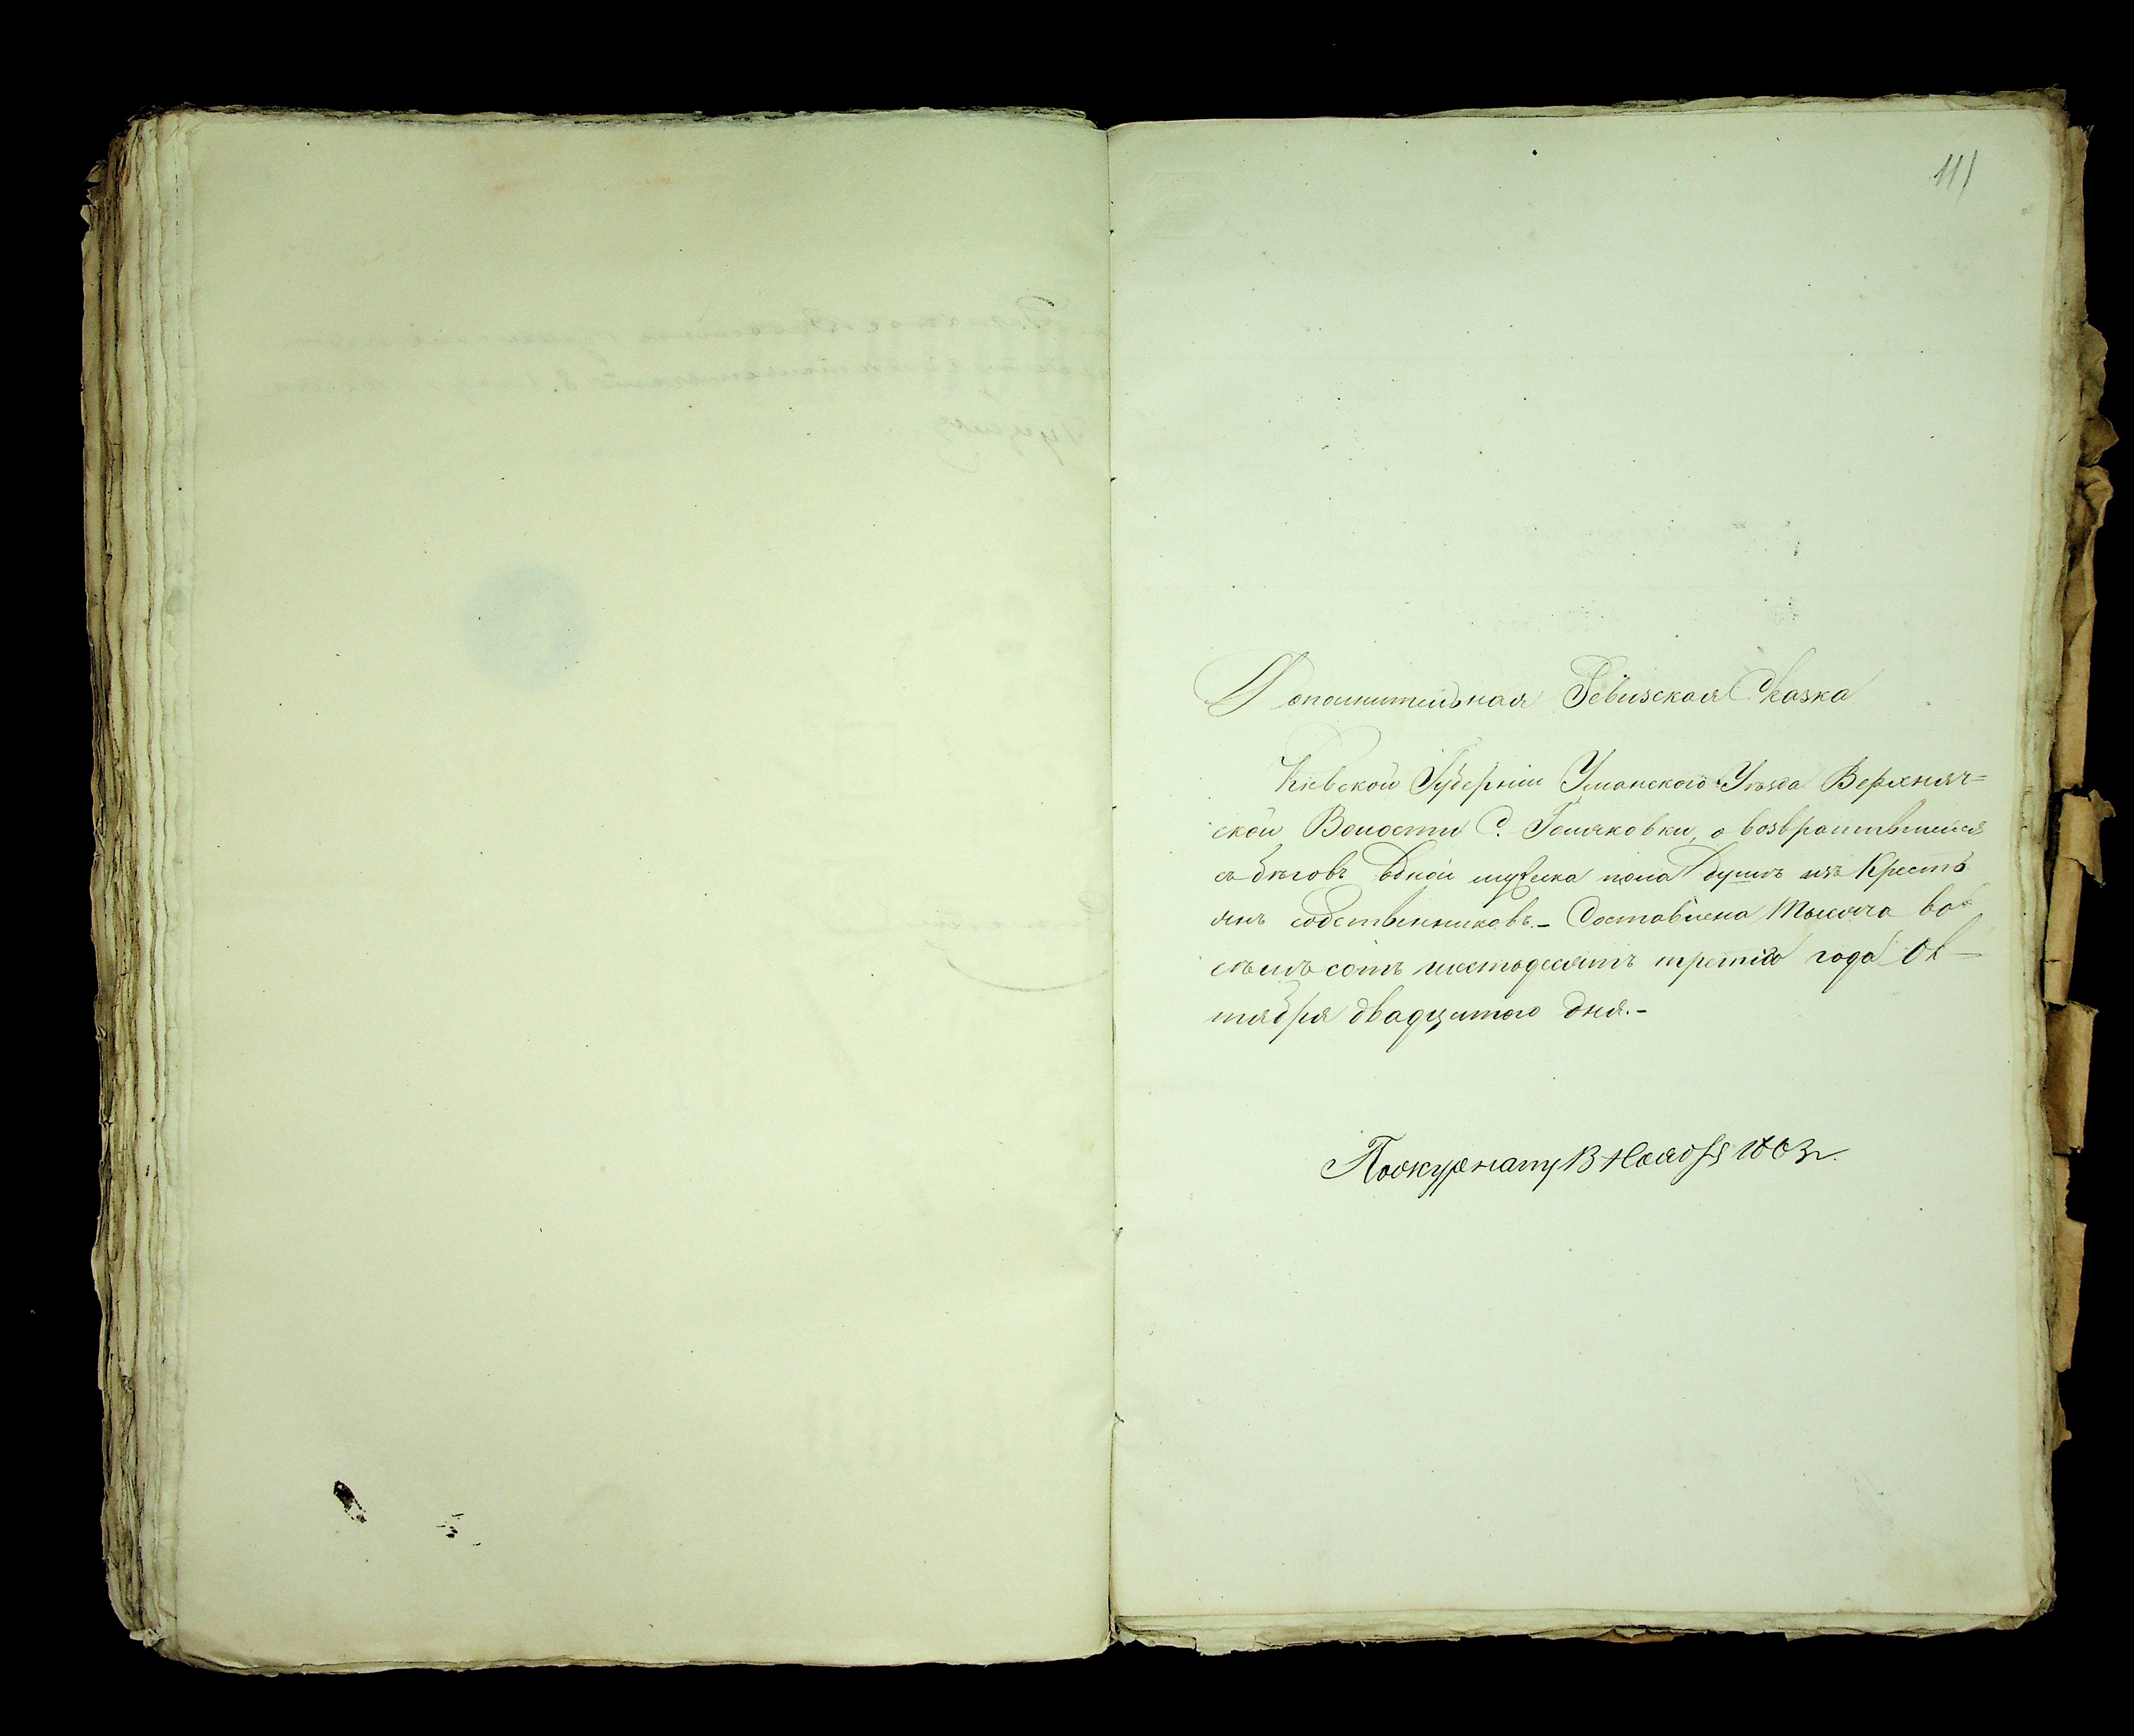 111
Дополнительная Ревизская Сказка
Кіевской Губерніи Уманского Уѣзда Верхняч=
ской Волости С. о возвратившейся
съ бѣговъ одной мужеска пола души изъ Кресть
янъ собственниковъ.- Составлена Тысяча во
семь сотъ шестьдесятъ третіго года Ок-
тября двадцатого дня.-
По журналу 13 Ноября 1863 г.